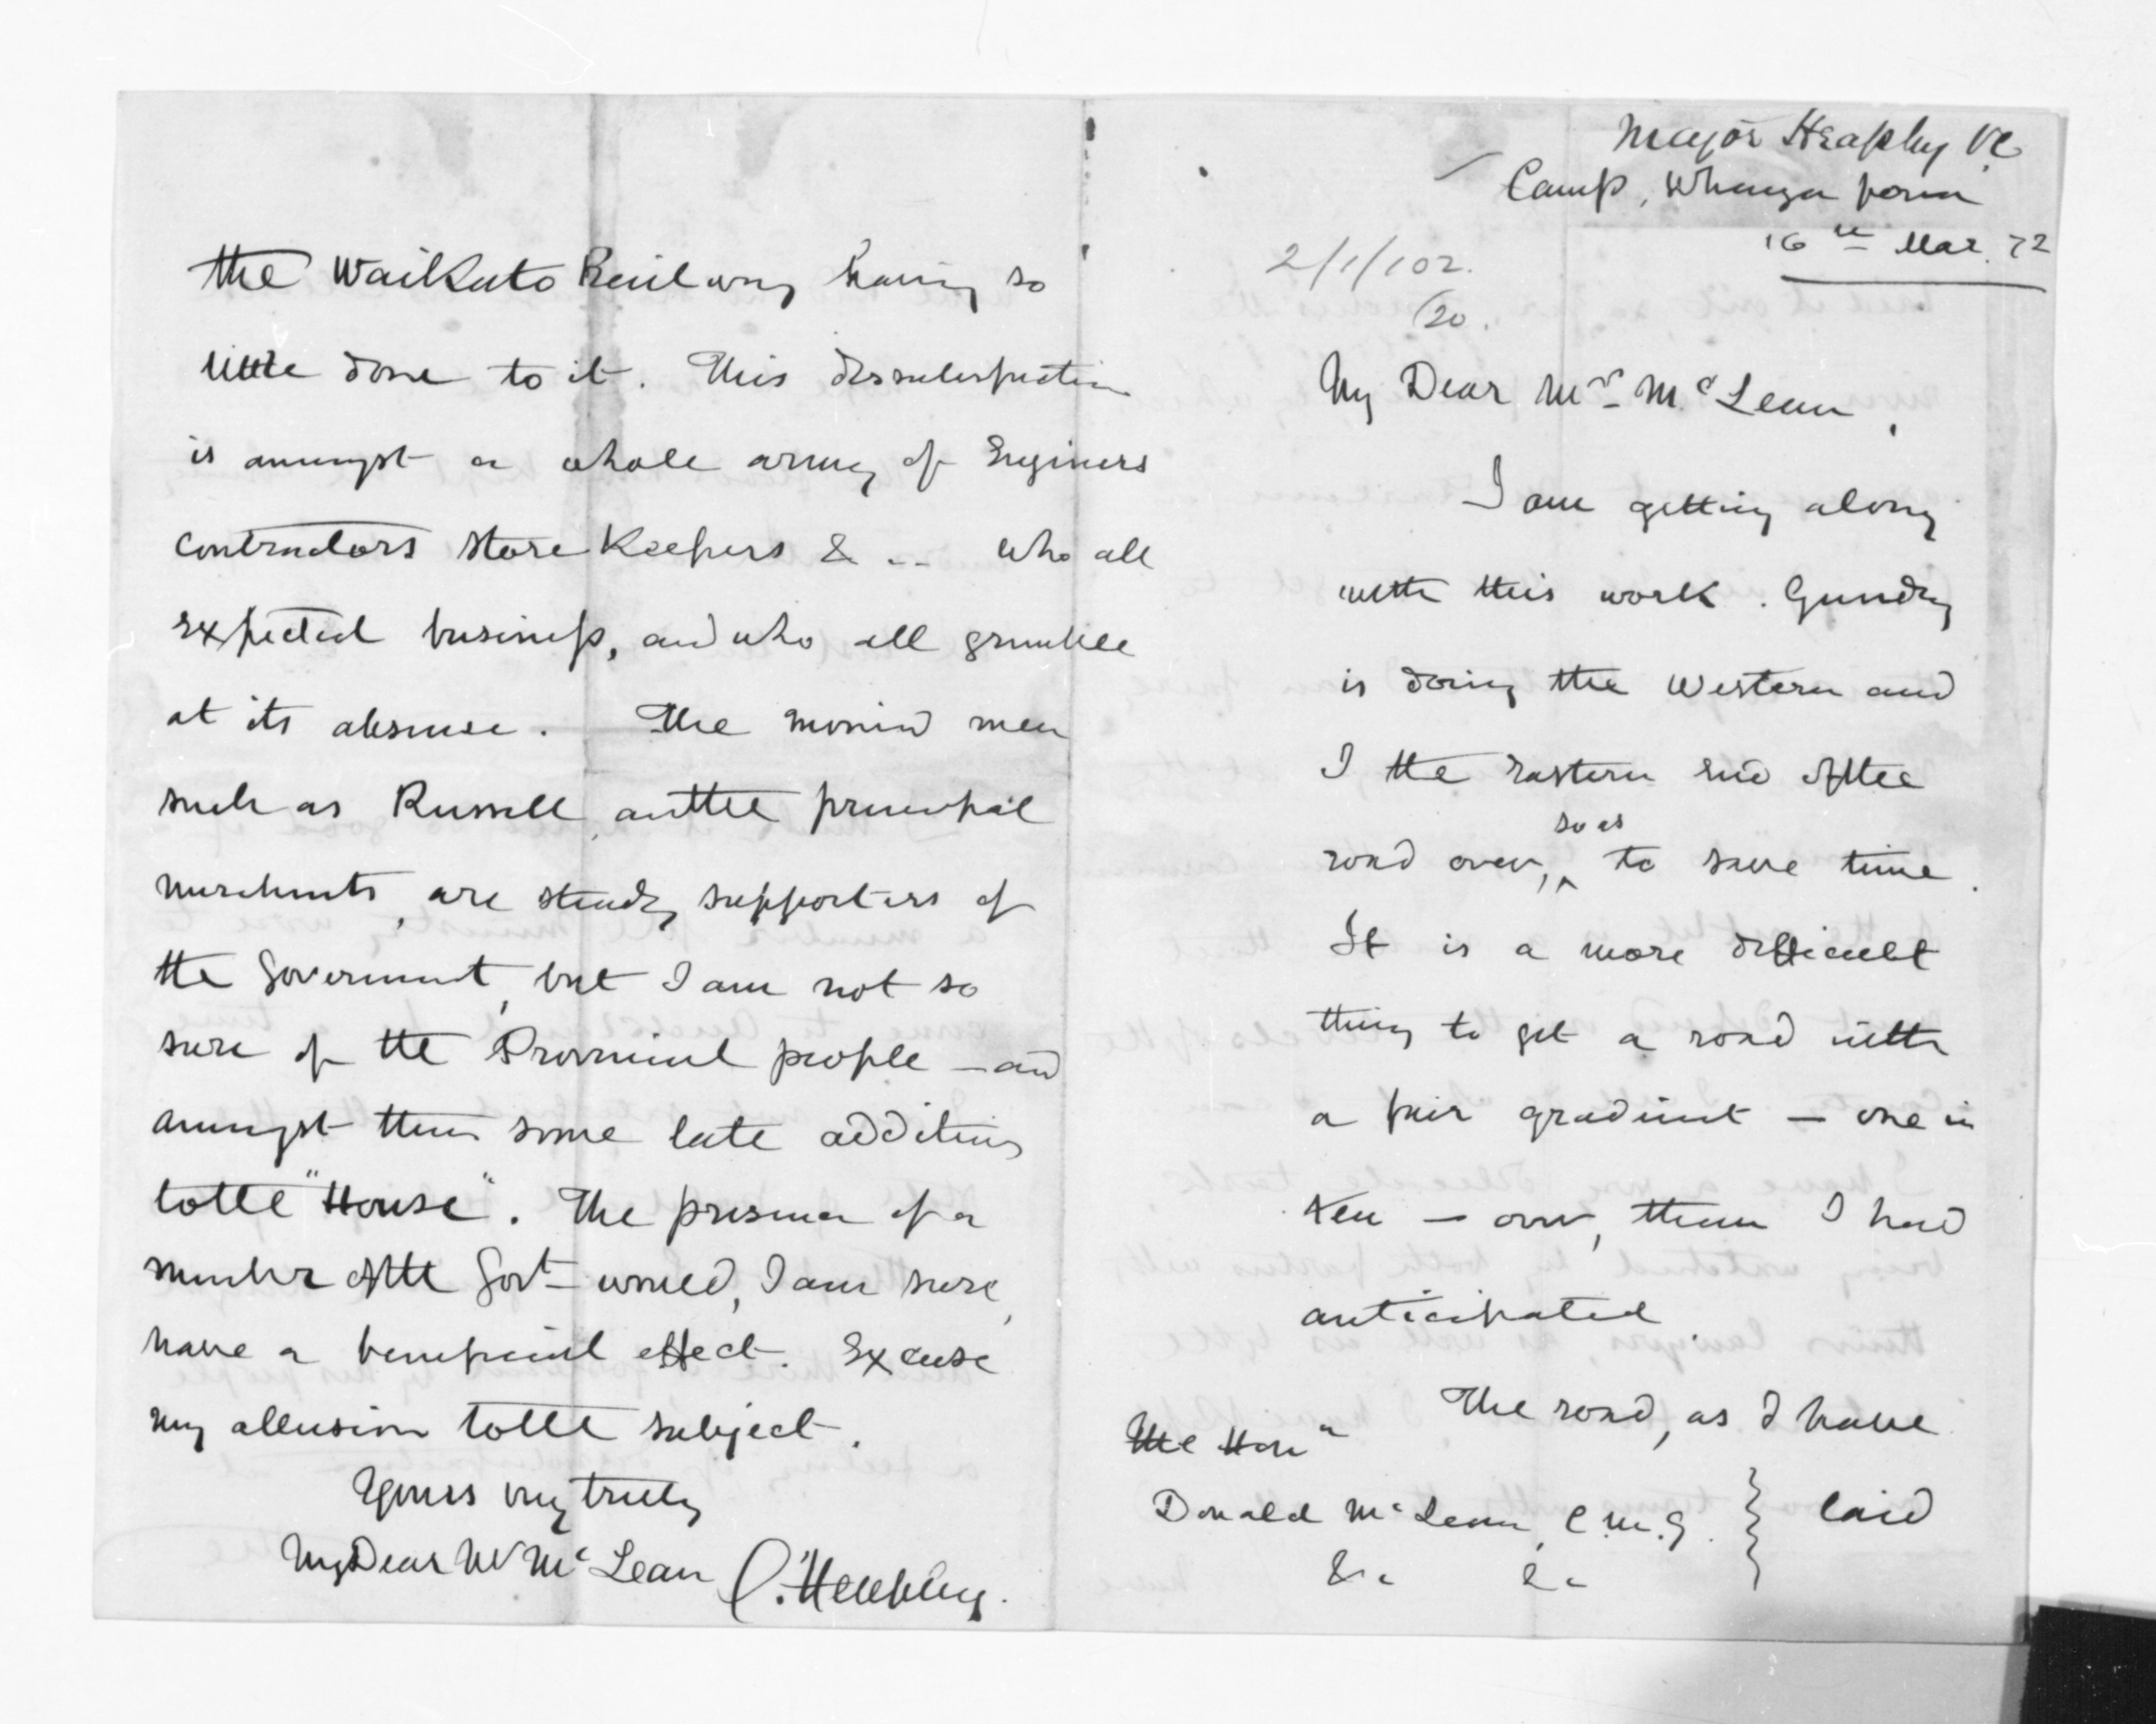 Major Heaphy VC
Camp, Whangaporua
16th Mar. 72
2/1/102.
/20.
My Dear Mr McLean,
I am getting along
with this work. Gundry
is doing the Western and
I the eastern end of the
road over, so as to save time.
It is a more difficult
thing to get a road with
a fair gradient — one in
ten — over, than I had
anticipated
The road, as I have
The Honn
Donald McLean, C.M.G.
&c &c
laid
the Waikato Railway having so
little done to it. This dissatisfaction
is amongst a whole army of Engineers
contractors store keepers &c who all
expected business, and who all grumble
at its absence. The monied men
such as Russell, and the principal
merchants, are steady supporters of
the Goverment, but I am not so
sure of the Provincial people — and
amongst them some late additions
to the "House". The presence of a
member of the Govt would, I am sure,
have a beneficial effect. Excuse
my allusion to the subject.
Yours very truly
My Dear Mr McLean C. Heaphy.